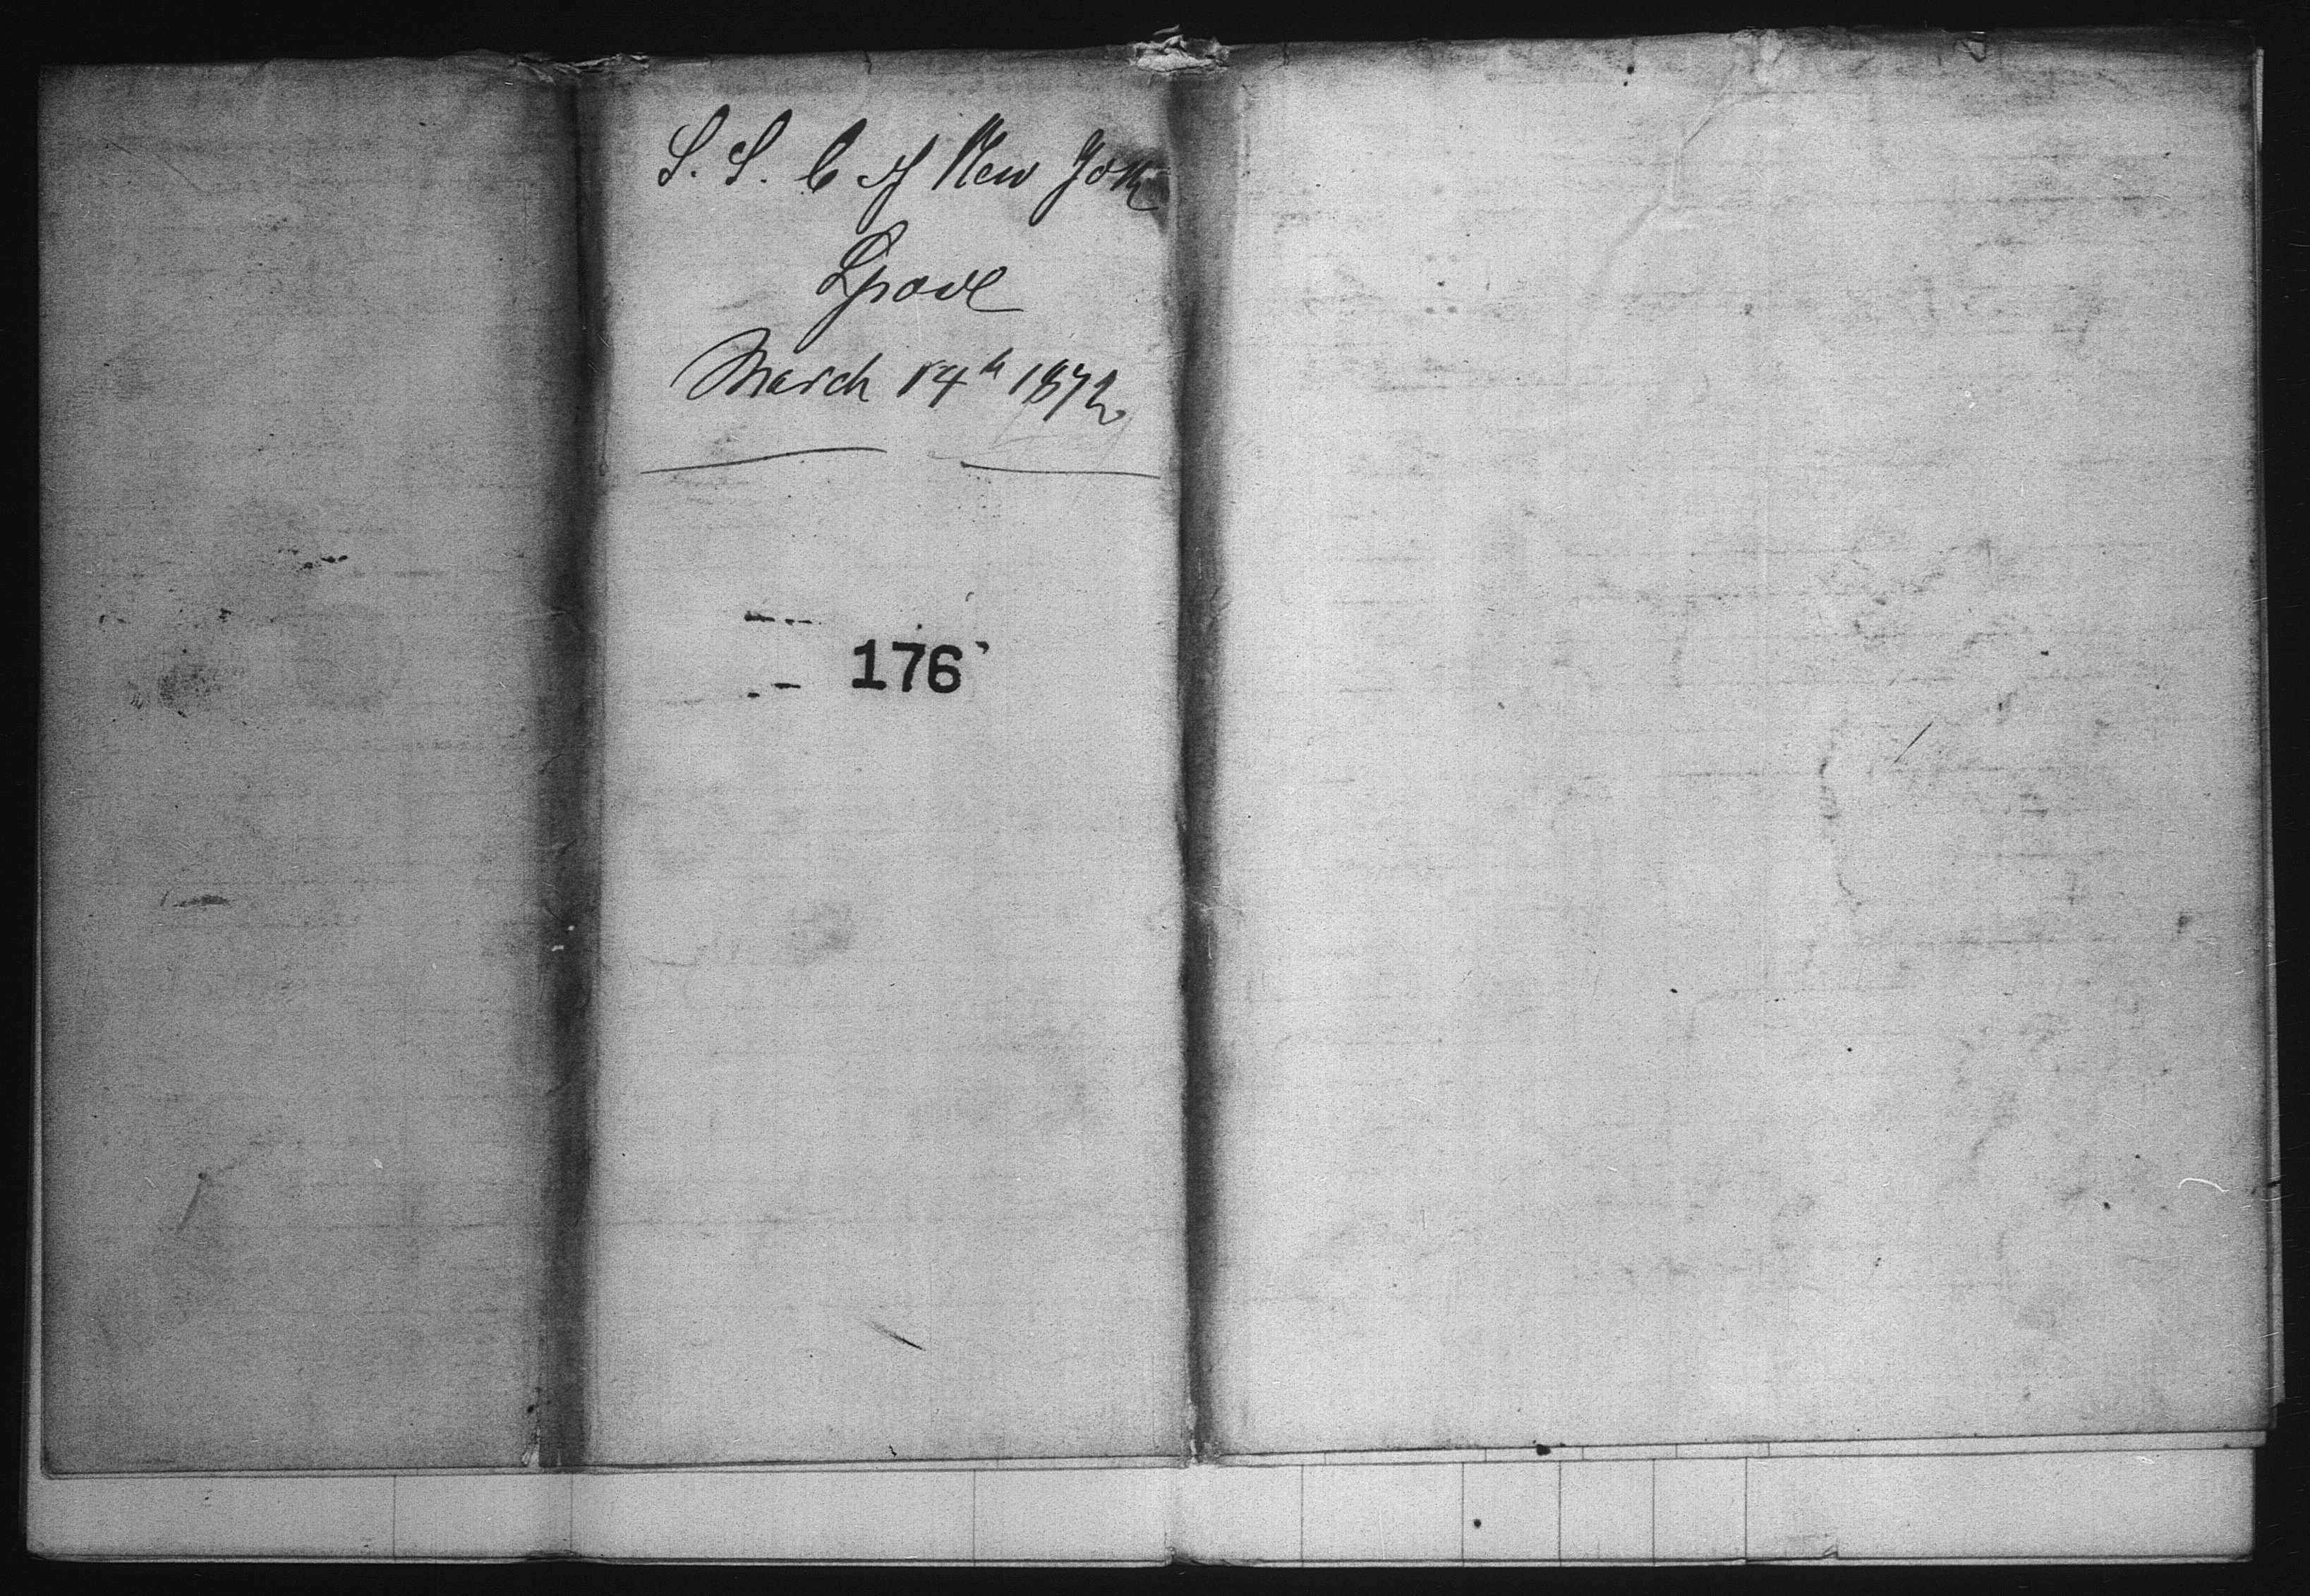 S. S. C of New York
Lpool
March 14th 1872
176